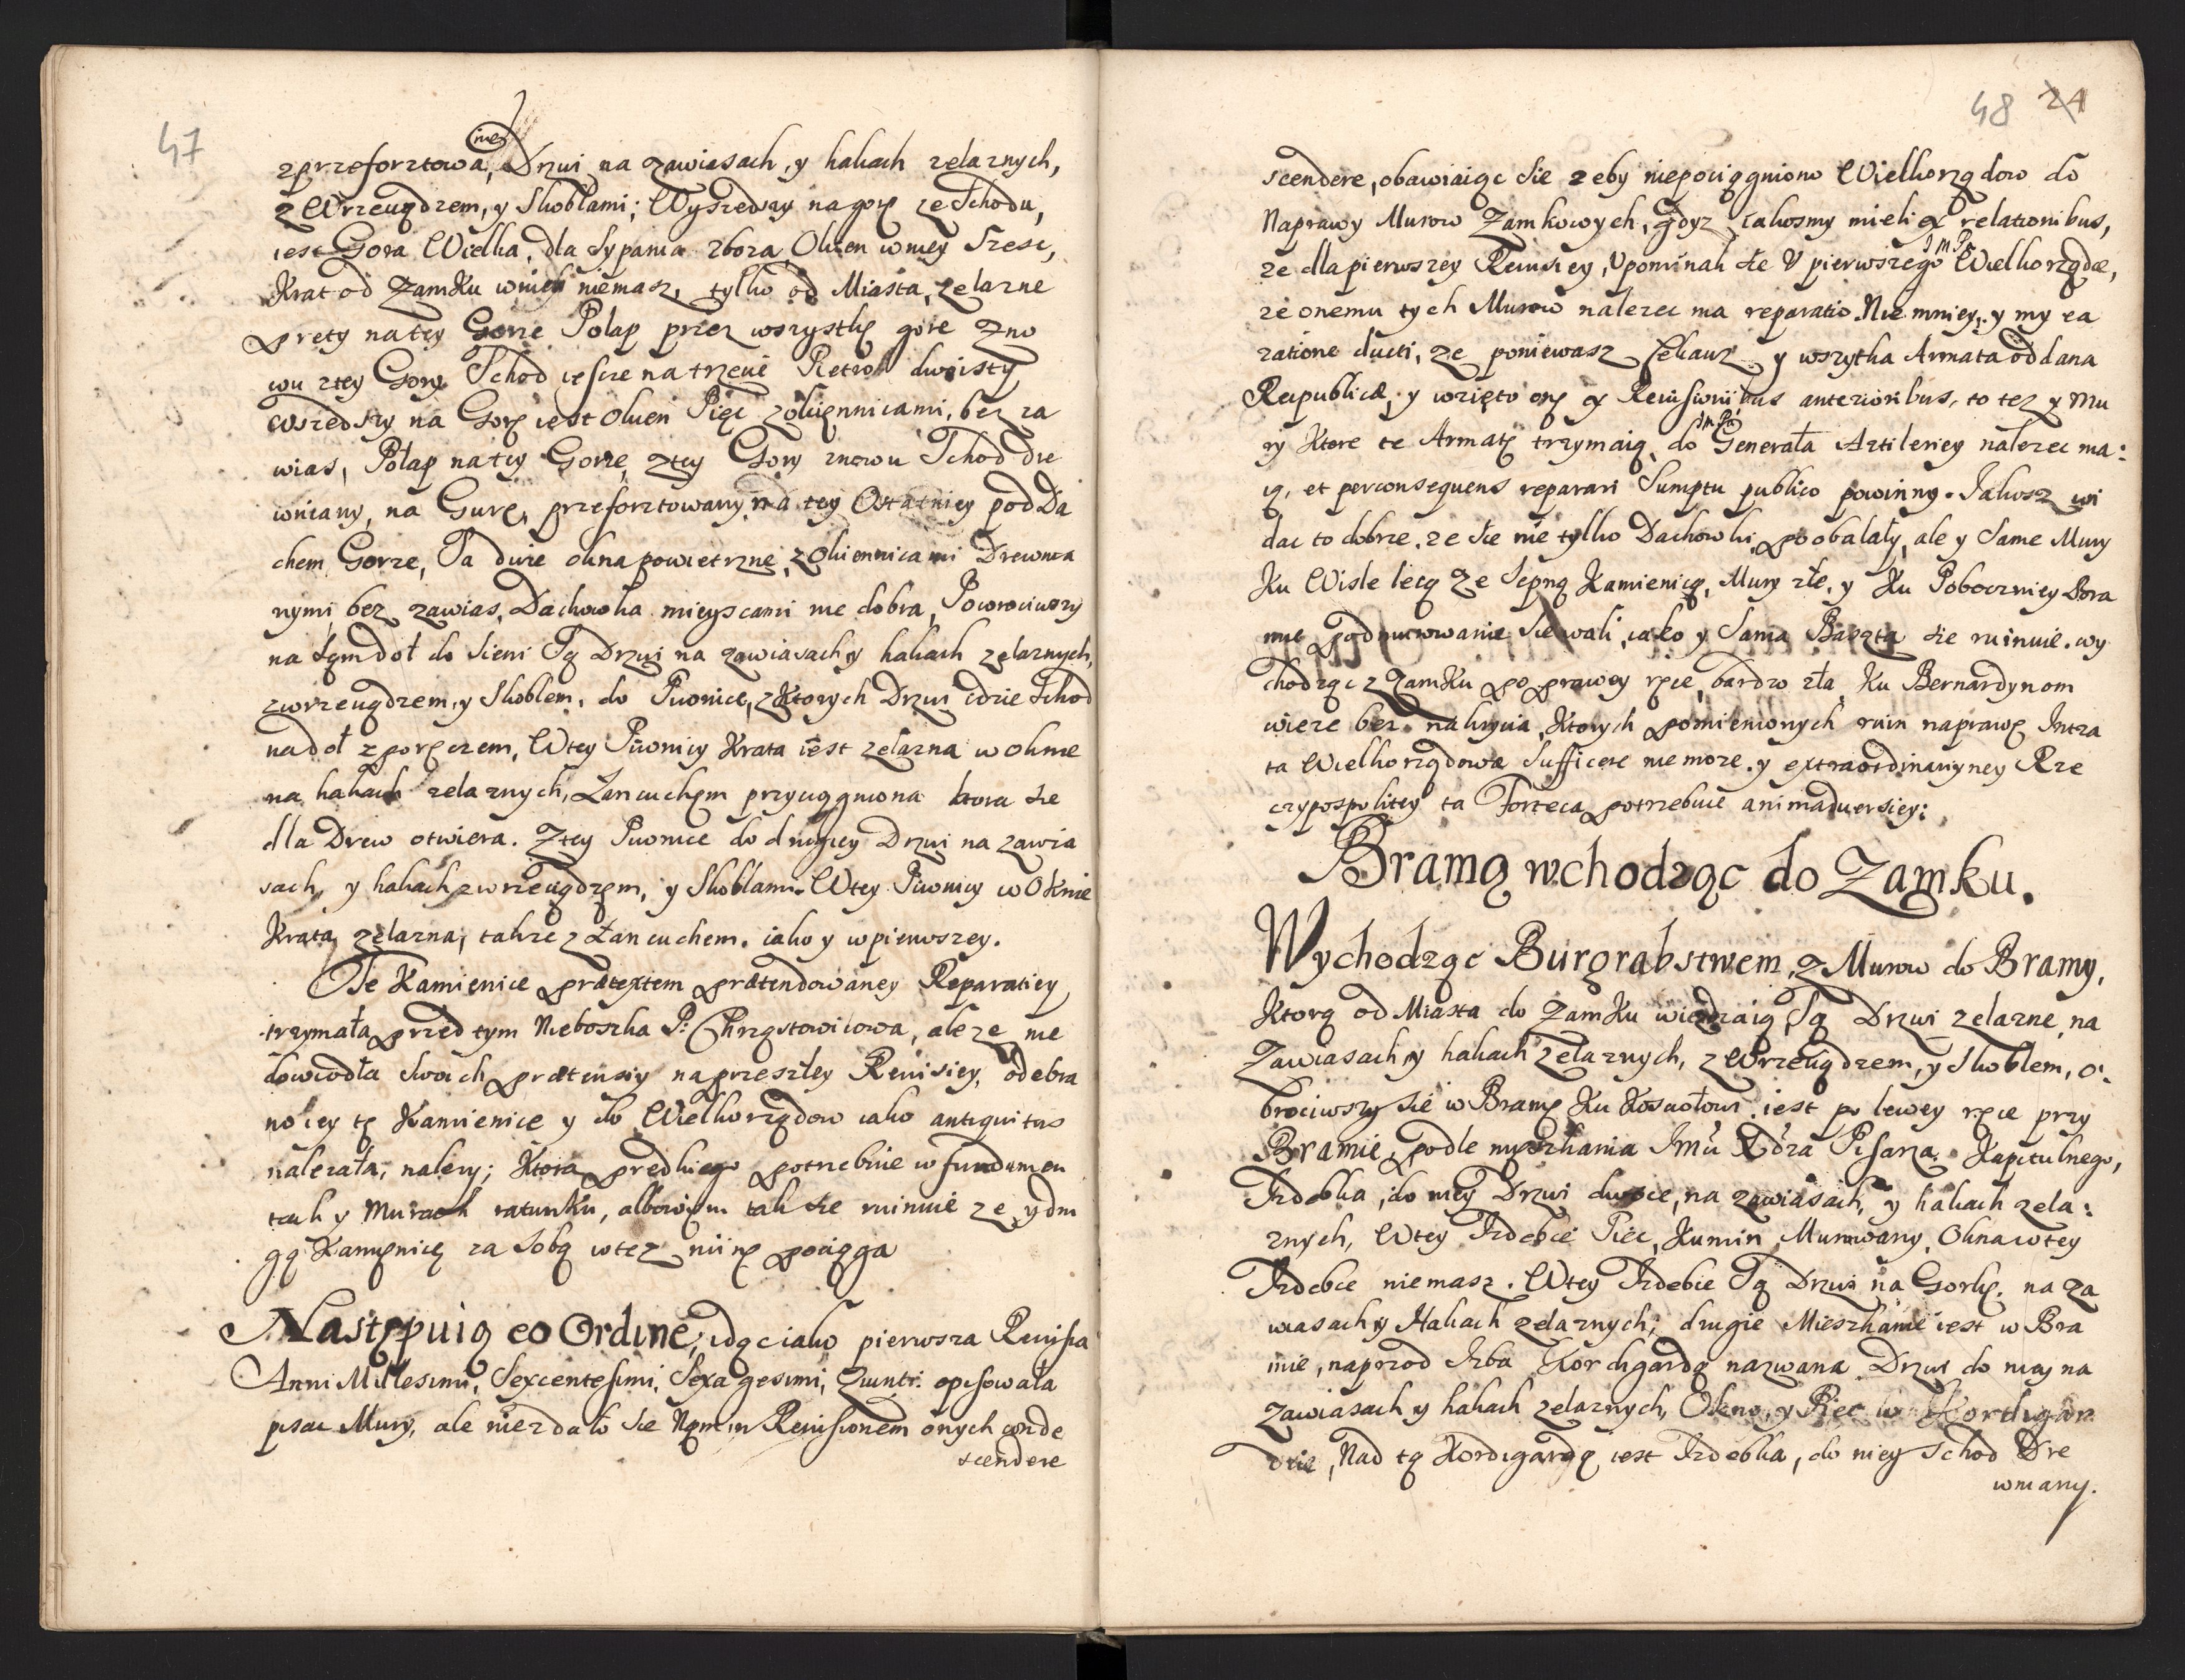 47
nie
zprzefortowa, Drzwi na zawiasach, y hakach zelaznych,
z Wrzeciądzem, y Skoblami; Wyszedszy na gorę ze Schodu,
iest Gora Wielka, dla Sypania zboza, Okien wniey Szesc,
Krat od Zamku wnich niemasz, tylko od Miasta, zelazne
prety na tey Gorze Połap przez wszystkę gorę Zno
wu ztey Gory Schod iescze na trzecie Pietro dwoisty
wszedszy na Gorę iest Okien Pięc zokięnnicami, bez za
wias, Połap na tey Gorze, ztey Gory znowu Schod dre
wniany, na Gurę, przefortowany na tey Ostatniey pod Da
chem Gorze, Są duże okna powietrzne, z Okiennicami Drewnia
nymi bez zawias, Dachowka mieyscami nie dobra, Powrociwszy
na sąm doł do Sieni Są Drzwi na zawiasach y hakach zelaznych,
zwrzeciądzem, y Skoblem, do Piwnice, z Ktorych Drzwi idzie Schod
na doł z poręczem, Wtey Piwnicy Krata iest zelazna w oknie
na hakach zelaznych, Łancuchęm przyciągniona ktora sie
dla Drew otwiera. Ztey Piwnice do drugiey Drzwi na zawia
sach, y hakach zwrzeciądzęm, y Skoblami. Wtey Piwnicy w Oknie
Krata zelazna, takze z Łancuchem. iako y wpierwszey.
Te Kamienice prætextem prætendowaney Reparatiey
trzymała przed tym Nieboszka P: Chrząstowicowa, ale ze nie
dowiodła swoich prætensiy na przeszłey Rewisiey, odebra
no iey tę Kamienice y do Wielkorządow iako antiquitus
nalezała, nalezy; Ktora prędkiego potrzebuie w fundamen
tach y Murach ratunku, albowiem tak sie ruinuie ze y dru
gą Kamięnicę za Sobą wtez ruinę pociąga
Następuią eo Ordine, idąc iako pierwsza Rewisia
Anni Millesimi, Sexcentesimi, Sexagesimi, Quinti. opisowała
pisac Mury, ale niezdało sie Nom in Revisionem onych conde
scendere
48 24
scendere, obawiaiąc sie zeby niepociągniono Wielkorządow do
Naprawy Murow Zamkowych, Gdyz iakosmy mieli ex relationibus,
Im Pa
ze dla pierwszey Rewisiey, Upominak sie U pierwszego Wielkorządce,
ze onemu tych Murow nalezec ma reparatio. Nie mniey, y my ea
ratione ducti, ze poniewasz Cekauz y wszytka Armata oddana
Reipublicæ, y wzięto onę ex Revisionibus anterioribus, to tez y Mu
Im Pa
ry Ktore te Armatę trzymaią, do Generała Artileriey nalezec ma:
ią, et perconsequens reparari Sumptu publico powinny. Iakosz wi
dac to dobrze, ze sie nie tylko Dachowki poobalały, ale y Same Mury
Ku Wisle lecą ze Sępną Kamienicą, Mury złe, y Ku Poboczniey Bra
mie podmurowanie Sie wali, iako y Sama Baszta sie ruinuie. wy
chodząc z Zamku po prawey ręce, bardzo zła, Ku Bernardynom
wieze bez nakrycia, Ktorych pomienionych ruin naprawę Intra
ta Wielkorządowa Sufficere nie moze. y extraordinaryney Rze
czypospolitey ta Forteca potrzebuie animadversiey:
Bramą wchodząc do Zamku.
Wychodząc Burgrabstwem, z Murow do Bramy,
Ktorą od Miasta do Zamku wiezdzaią, Są Drzwi zelazne, na
Zawiasach y hakach zelaznych, z Wrzeciądzem, y Skoblem, o:
brociwszy sie w Bramę Ku Koscołowi. iest po lewey ręce przy
Bramie, podle myszkania Imci Xdza Pisarza Kapitulnego,
Izdebka, do niey Drzwi dwoie, na zawiasach, y hakach zela:
znych, Wtey Izdebce Piec, Kumin Murowany, Okna wtey
Izdebce niemasz. Wtey Izdebie Są Drzwi na Gorkę. na za
wiasach y Hakach zelaznych; drugie Mieszkanie iest w Bra
mie, naprzod Izba Kordigardą nazwana Drzwi do niey na
Zawiasach y hakach zelaznych, Okno, y Piec w Kordigar
dzie, Nad tą Kordigardą iest Izdebka, do niey Schod Dre
wniany.